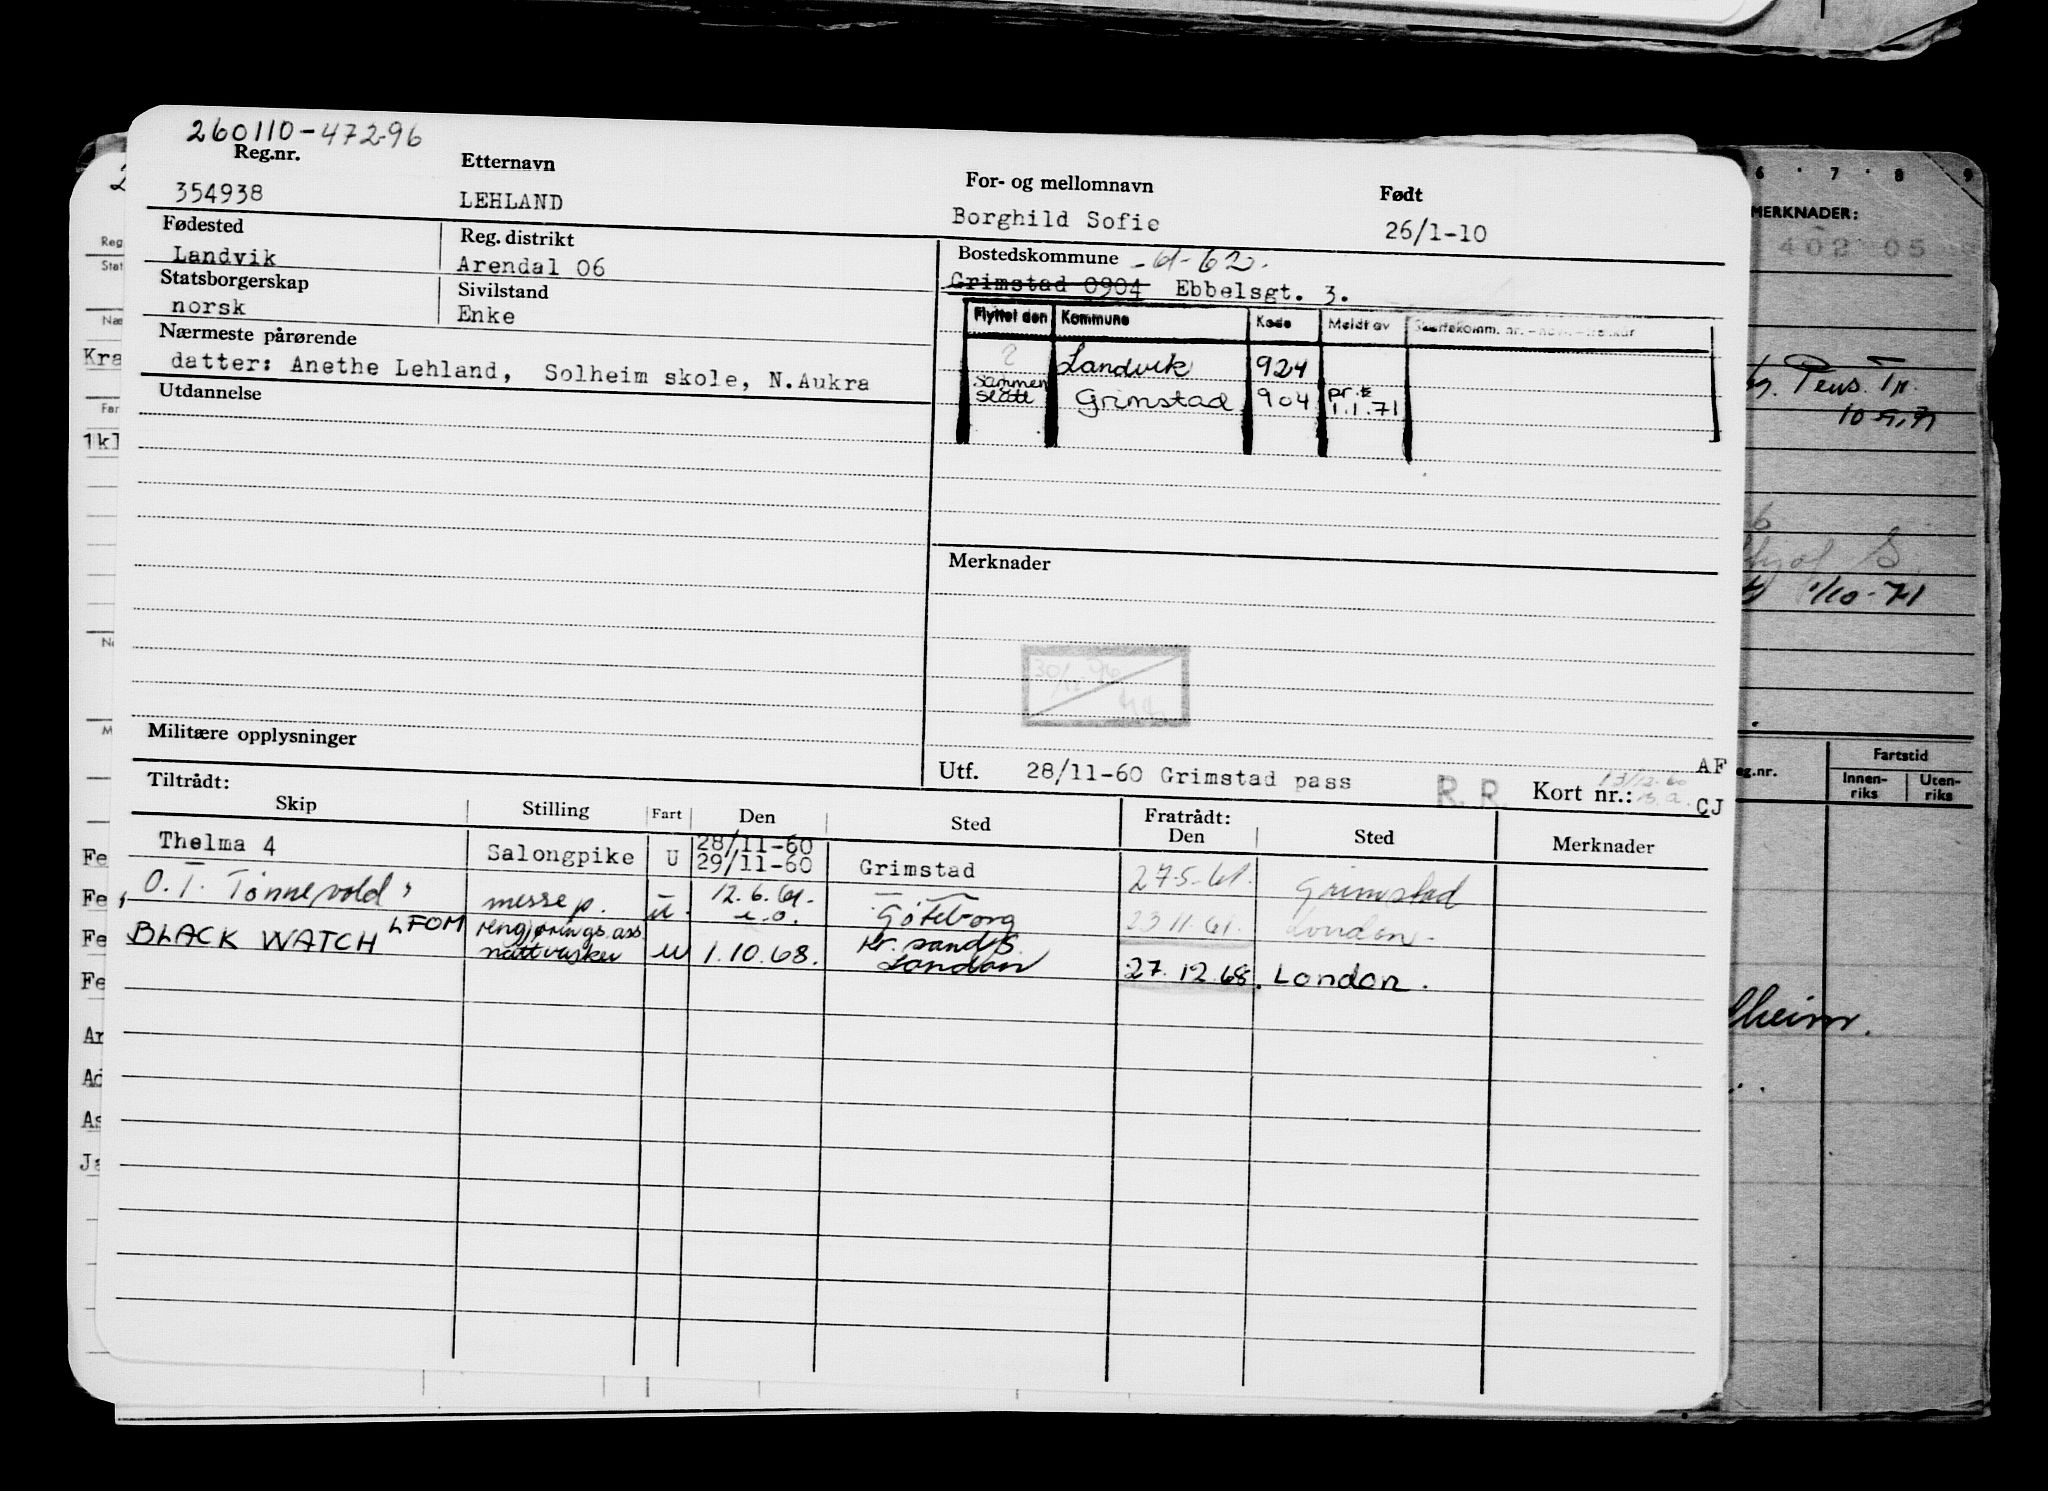 260110-47296
Reg.nr. Etternavn For- og mellomnavn Født
354938 LEHLAND Borghild Sofie 26/1-10
Fødested Reg. distrikt Bostedskommune
Landvik Arendal 06 Grimstad 0904 Ebbelsgt. 3.
Statsborgerskap Sivilstand
norsk Enke
Flyttet den Kommune Kode Meldt av
Nærmeste pårørende
datter: Anethe Lehland, Solheim skole, N.Aukra
Landvik 924
Sammen slått Grimstad 904 pr. 1.1.71
Utdannelse
Merknader
Militære opplysninger
Utf. 28/11-60 Grimstad pass R.R. Kort nr.:
AF
CJ
Tiltrådt: Fratrådt:
Skip Stilling Fart Den Sted Den Sted Merknader
Thelma 4 Salongpike U 28/11-60 29/11-60 Grimstad 27.5.61. Grimstad
O.T. Tønnevold messep. u. 12.6.61. Göteborg 23.11.61. London.
BLACK WATCH LFOM rengjørings.ass. nattvasker u 1.10.68. Kr.sand S. London 27.12.68. London.
6 7 8 9
MERKNADER:
402 05
Pens. Tr.
1/10-71
Fartstid
eg.nr. Innen-riks Uten-riks
lheim.
Reg
Stat
Kra
Fe
Fe
Fe
Fe
Ar
Ad
As
Ja